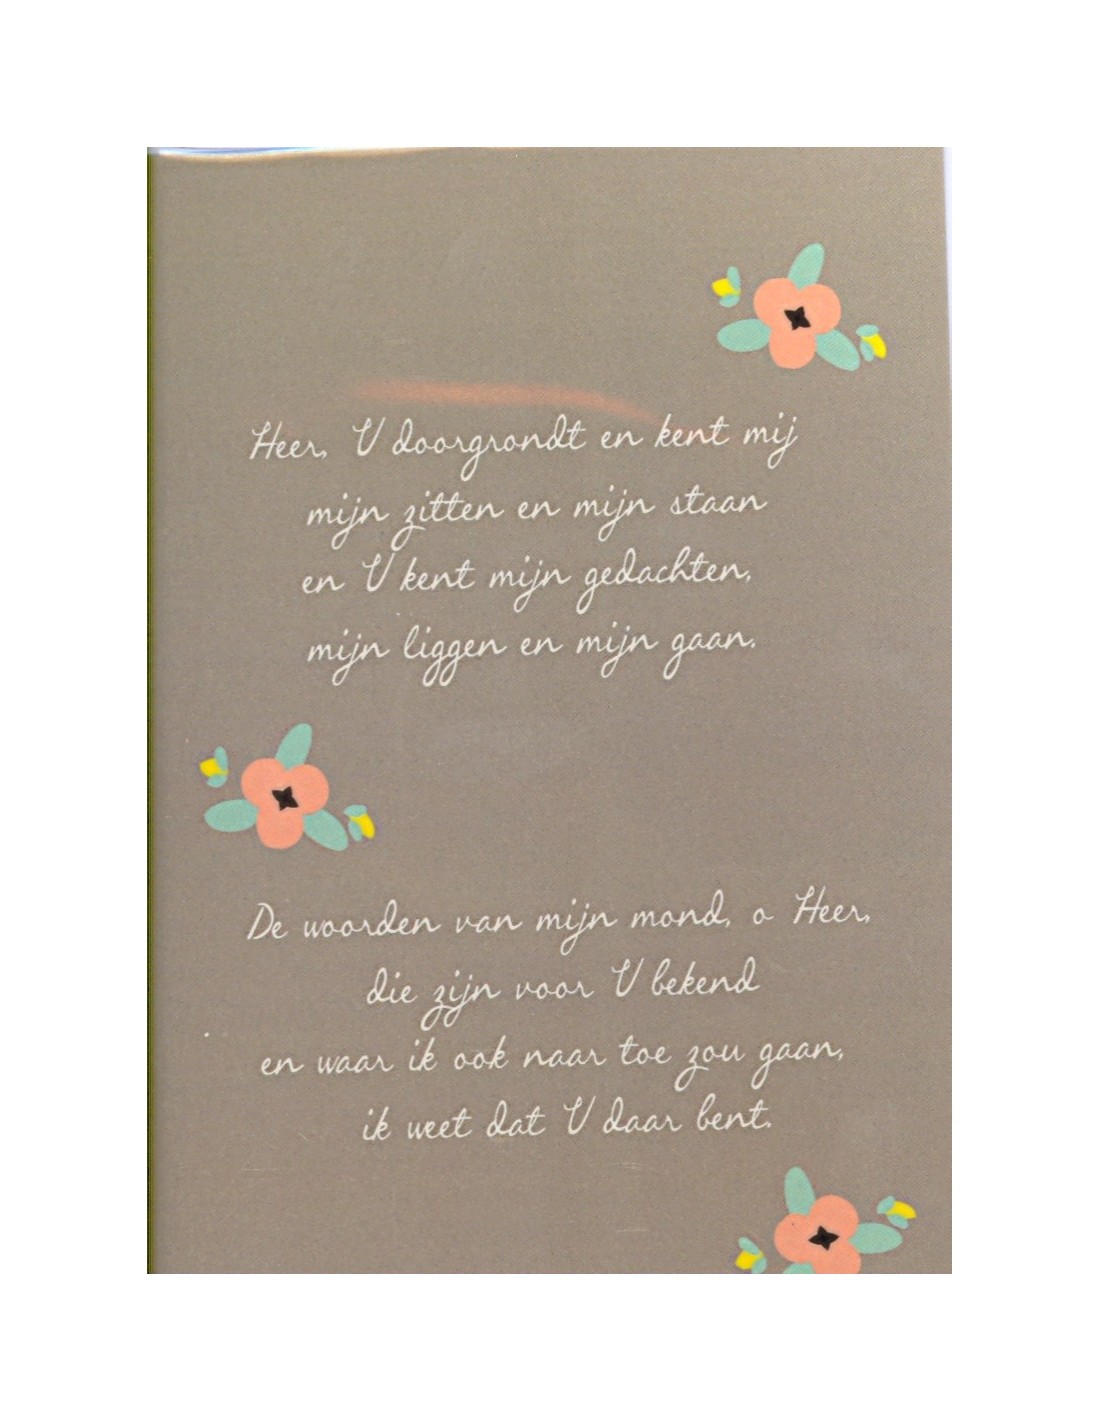 Heer, U doorgrondt en kent mij
mijn zitten en mijn staan
en U kent mijn gedachten,
mijn liggen en mijn gaan.
De woorden van mijn mond, o Heer,
die zijn voor U bekend
en waar ik ook naar toe zou gaan,
ik weet dat U daar bent.